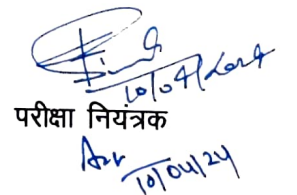 10/04/2024
परीक्षा नियंत्रक
10/04/24